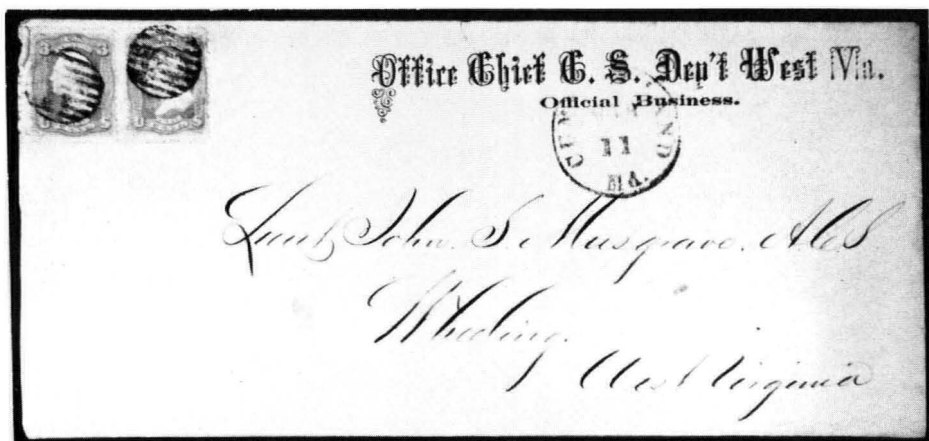 Office Chief C. S. Dep't West Va.
Official Business.
11
MD.
Lieut John. S. Musgrave. ACS
Wheeling.
West Virginia